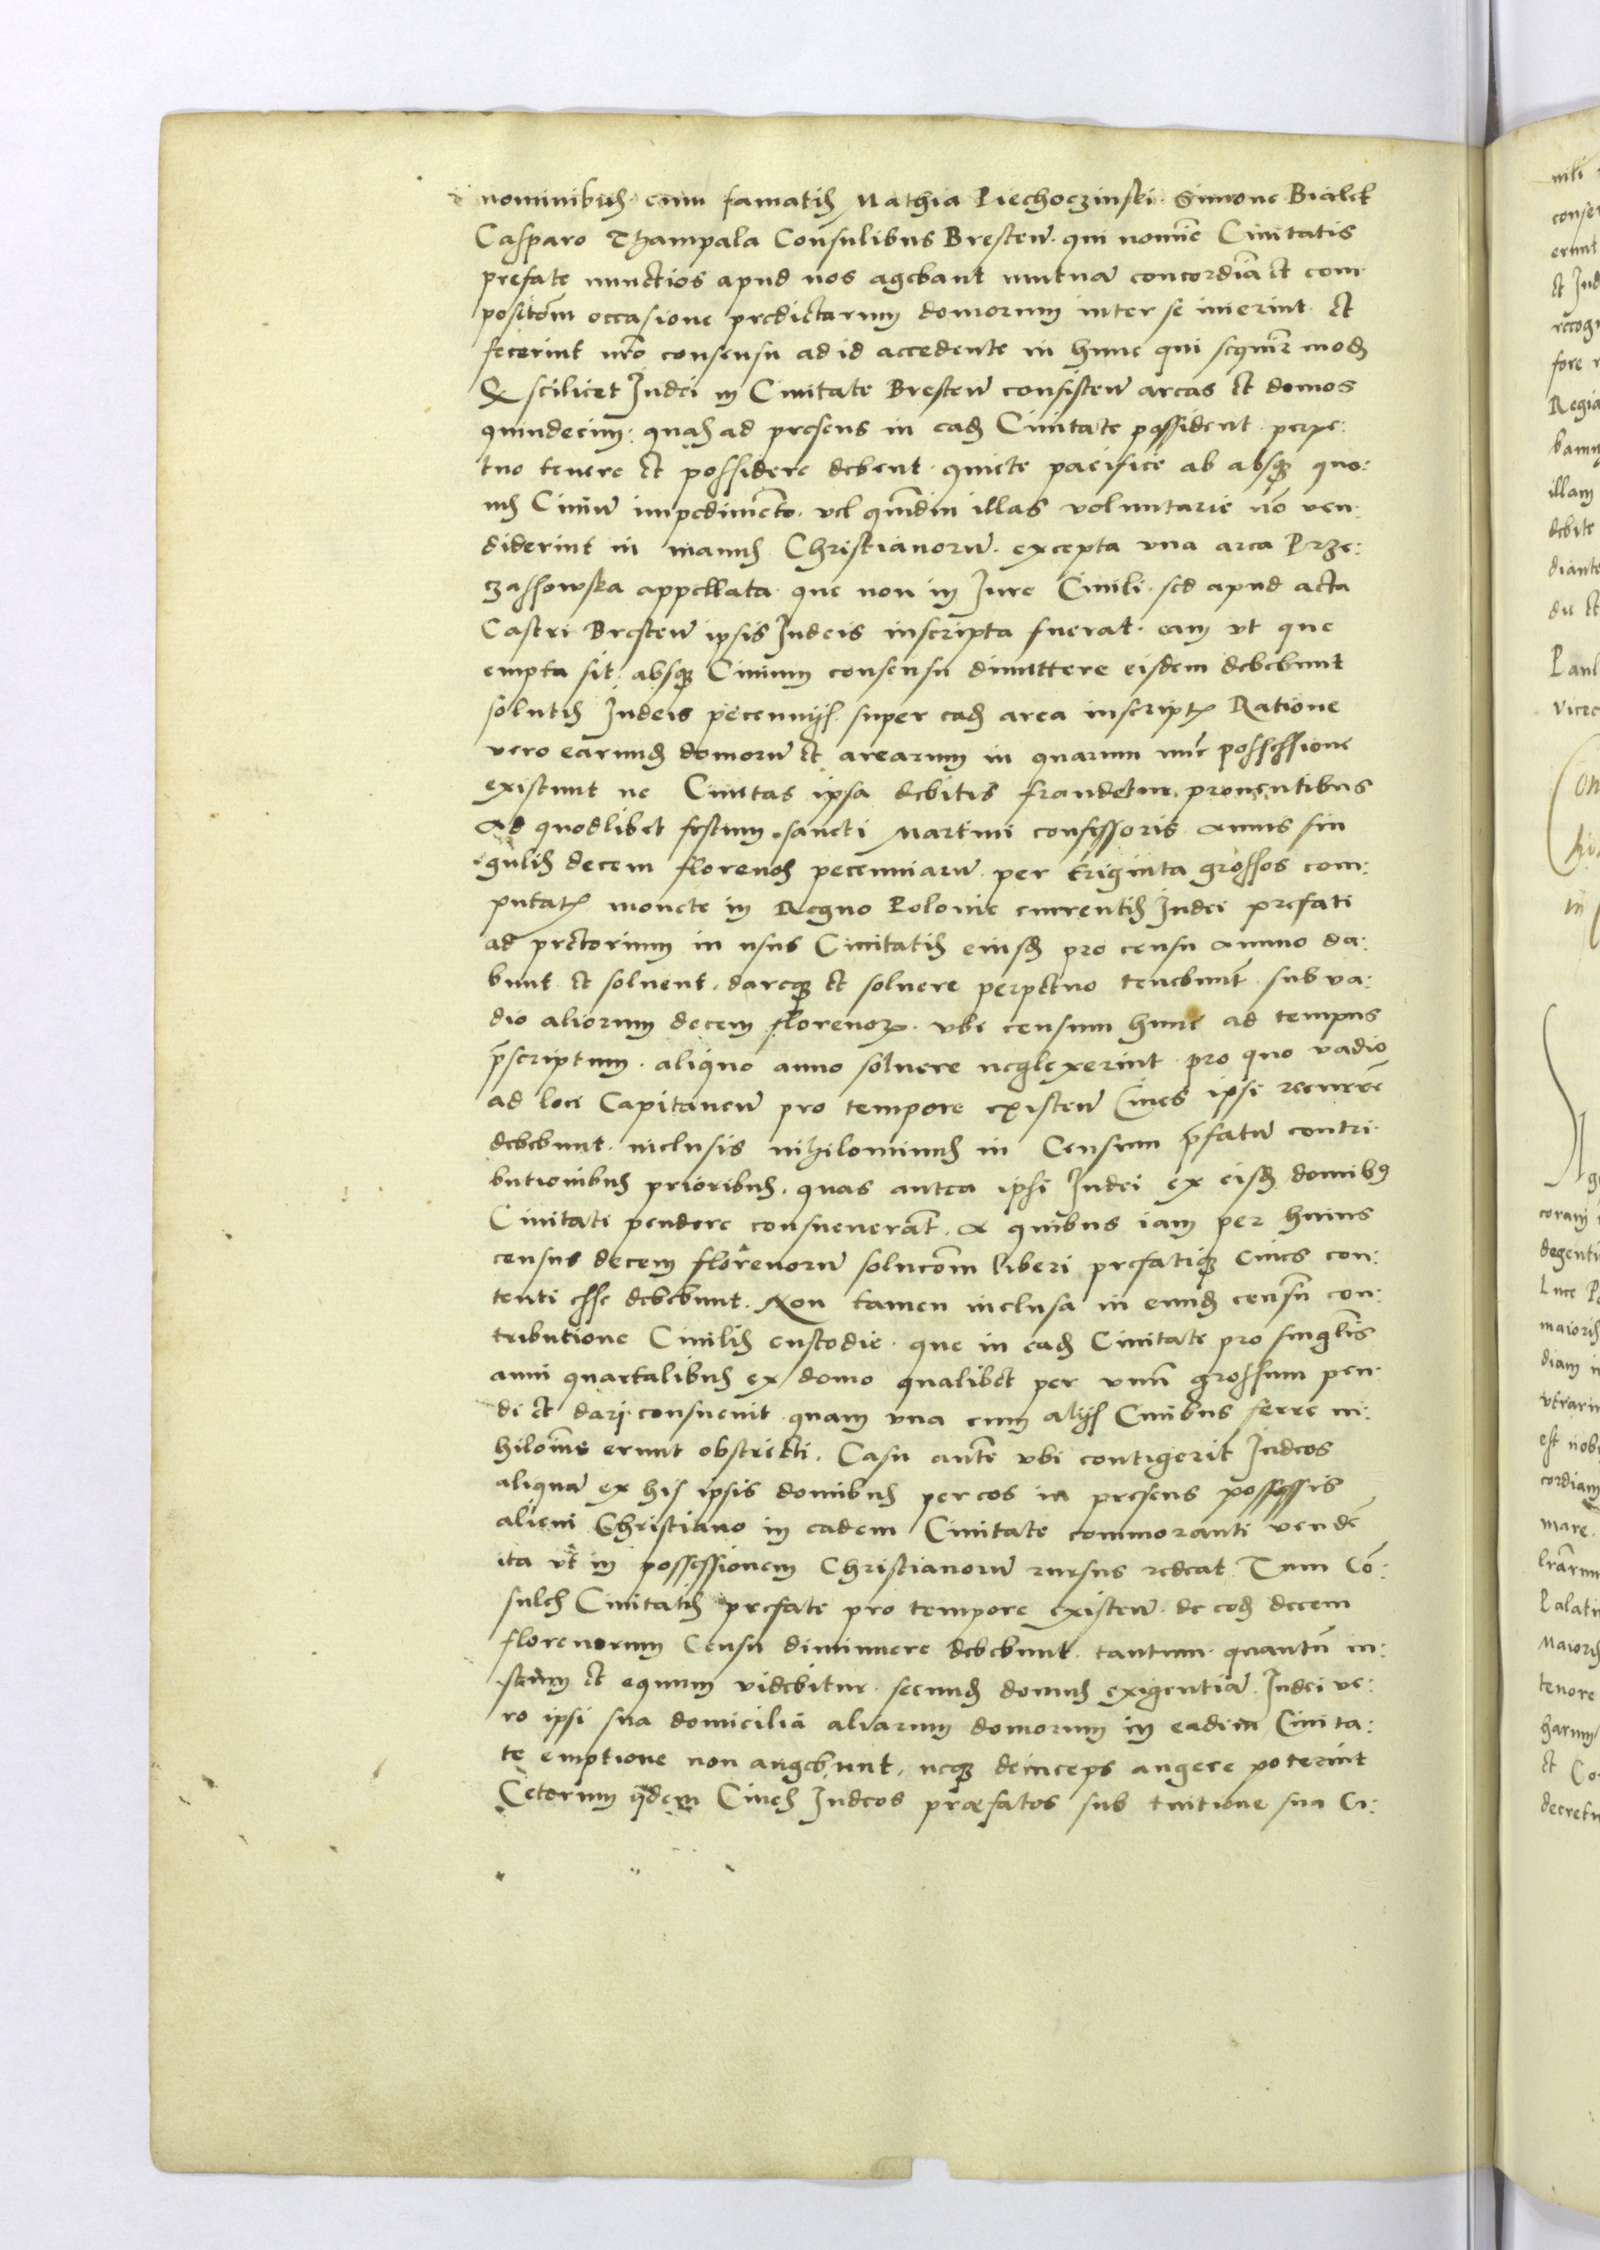 nominibus cum famatis Mathia Piechoczinski Simone Bialek
Casparo Thampala Consulibus Bresten̄. qui nomīe Ciuitatis
prefate nunctios apud nos agebant mutuā concordiā et com
positōm occasione predictarum domorum inter se inierint. et
fecerint nr̄o consensu ad id accedente in hunc qui sequitr̄ modū
Q scilicet Judei in Ciuitate Bresten̄ consisten̄ areas et domos
quindecim. quas ad presens in eadē Ciuitate possident. perpe:
tuo tenere et possidere debent. quiete pacifice ab absqȝ quo:
uis Ciuiū impedimēto. vel quādiu illas voluntarie nō ven:
diderint in manus Christianorū. excepta vna area Prze:
czassowska appellata. que non in Jure Ciuili. sed apud acta
Castri Bresten̄ ipsis Judeis inscripta fuerat. eam vt que
empta sit. absqȝ Ciuium consensu dimittere eisdem debebunt
solutis Judeis pecunnijs super eadē area inscriptꝭ Ratione
vero earundē domorū et arearum in quarum nūc possessione
existunt ne Ciuitas ipsa debitis fraudetur. prouentibus
Ad quodlibet festum sancti Martini confessoris annis sin
gulis decem florenos pecunniarū. per triginta grossos com:
putatꝭ monete in Regno Polonie currentis Judei prefati
ad pretorium in usus Ciuitatis eiusdē pro censu annuo da:
bunt et soluent. dareqȝ et soluere perpetuo tenebunt̄ sub va:
dio aliorum decem florenoꝝ. vbi censum hunc ad tempus
p̄scriptum. aliquo anno soluere neglexerint. pro quo vadio
ad loci Capitaneū pro tempore existen̄ Ciues ipsi recurrē
debebunt. inclusis nihilominus in Censum p̄fatū contri
butionibus prioribus. quas antea ipsi Judei ex eisdē domibꝰ
Ciuitati pendere consueuerant̄. A quibus iam per huius
census decem florenorū solucōm liberi prefatiqȝ ciues con:
tenti esse debebunt. Non tamen inclusa in eundē censū con:
tributione Ciuilis custodie. que in eadē Ciuitate pro singlis̄
anni quartalibus ex domo qualibet per vnū grossum pen:
di et dari consueuit quam vna cum alijs Ciuibus ferre ni:
hilomīs erunt obstricti. Casu aūte vbi contigerit Judeos
aliquā ex his ipsis domibus per eos in presens possessis
alicui Christiano in eadem Ciuitate commoranti vendē
ita vt in possessionem Christianorū rursus redeat. Tum Cō:
sules Ciuitatis prefate pro tempore existen̄. de eodē decem
florenorum Censu diminuere debebunt. tantum quantū iu:
stum et equum videbitur. secundū domus exigentiā. Judei ve:
ro ipsi sua domicilia aliarum domorum in eadem Ciuita:
te emptione non augebunt, neqȝ deinceps augere poterint
Ceterum ijdem Ciues Judeos præfatos sub tuitione sua Ci: